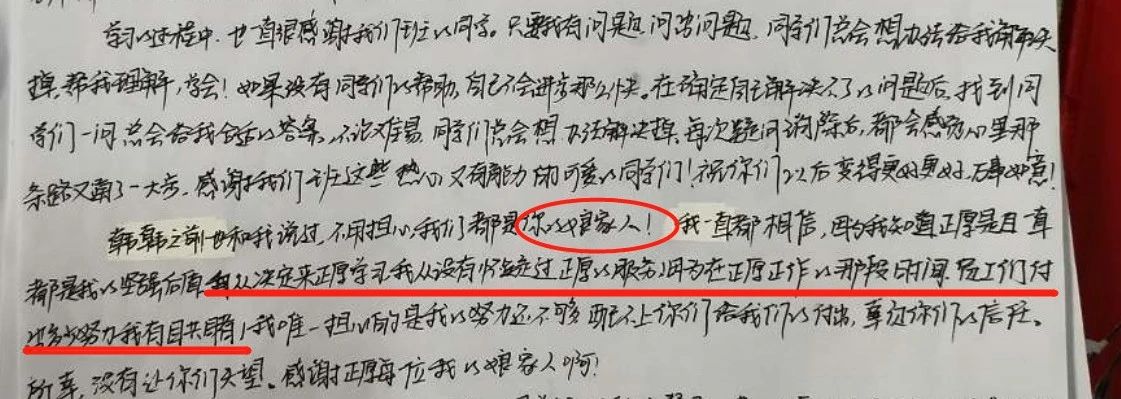 学习的过程中,也一直很感谢我们班的同学。只要我有问题,问出问题,同学们总会想办法给我解决
掉,帮我理解,学会!如果没有同学们的帮助,自己不会进步那么快。在确定自己解决不了的问题后,找到同
学们一问总会给我合适的答案,不论难易,同学们总会想办法解决掉。每次疑问消除后,都会感觉心里那
条路又有了一大步。感谢我们班这些热心又有能力的可爱的同学们!祝你们以后变得更好更好,万事如意!
韩韩之前也和我说过,不用担心,我们都是你的娘家人!我一直都相信,因为我知道正厚是且一直
都是我的坚强后盾,从决定来正厚学习我从没有怀疑过正厚的服务,因为在正厚工作的那段时间,员工们付
出多少努力我有目共睹!我唯一担心的是我的努力还不够,配不上你们给我们的付出,辜负你们的信任。
所幸,没有让你们失望。感谢正厚每位我的娘家人啊!